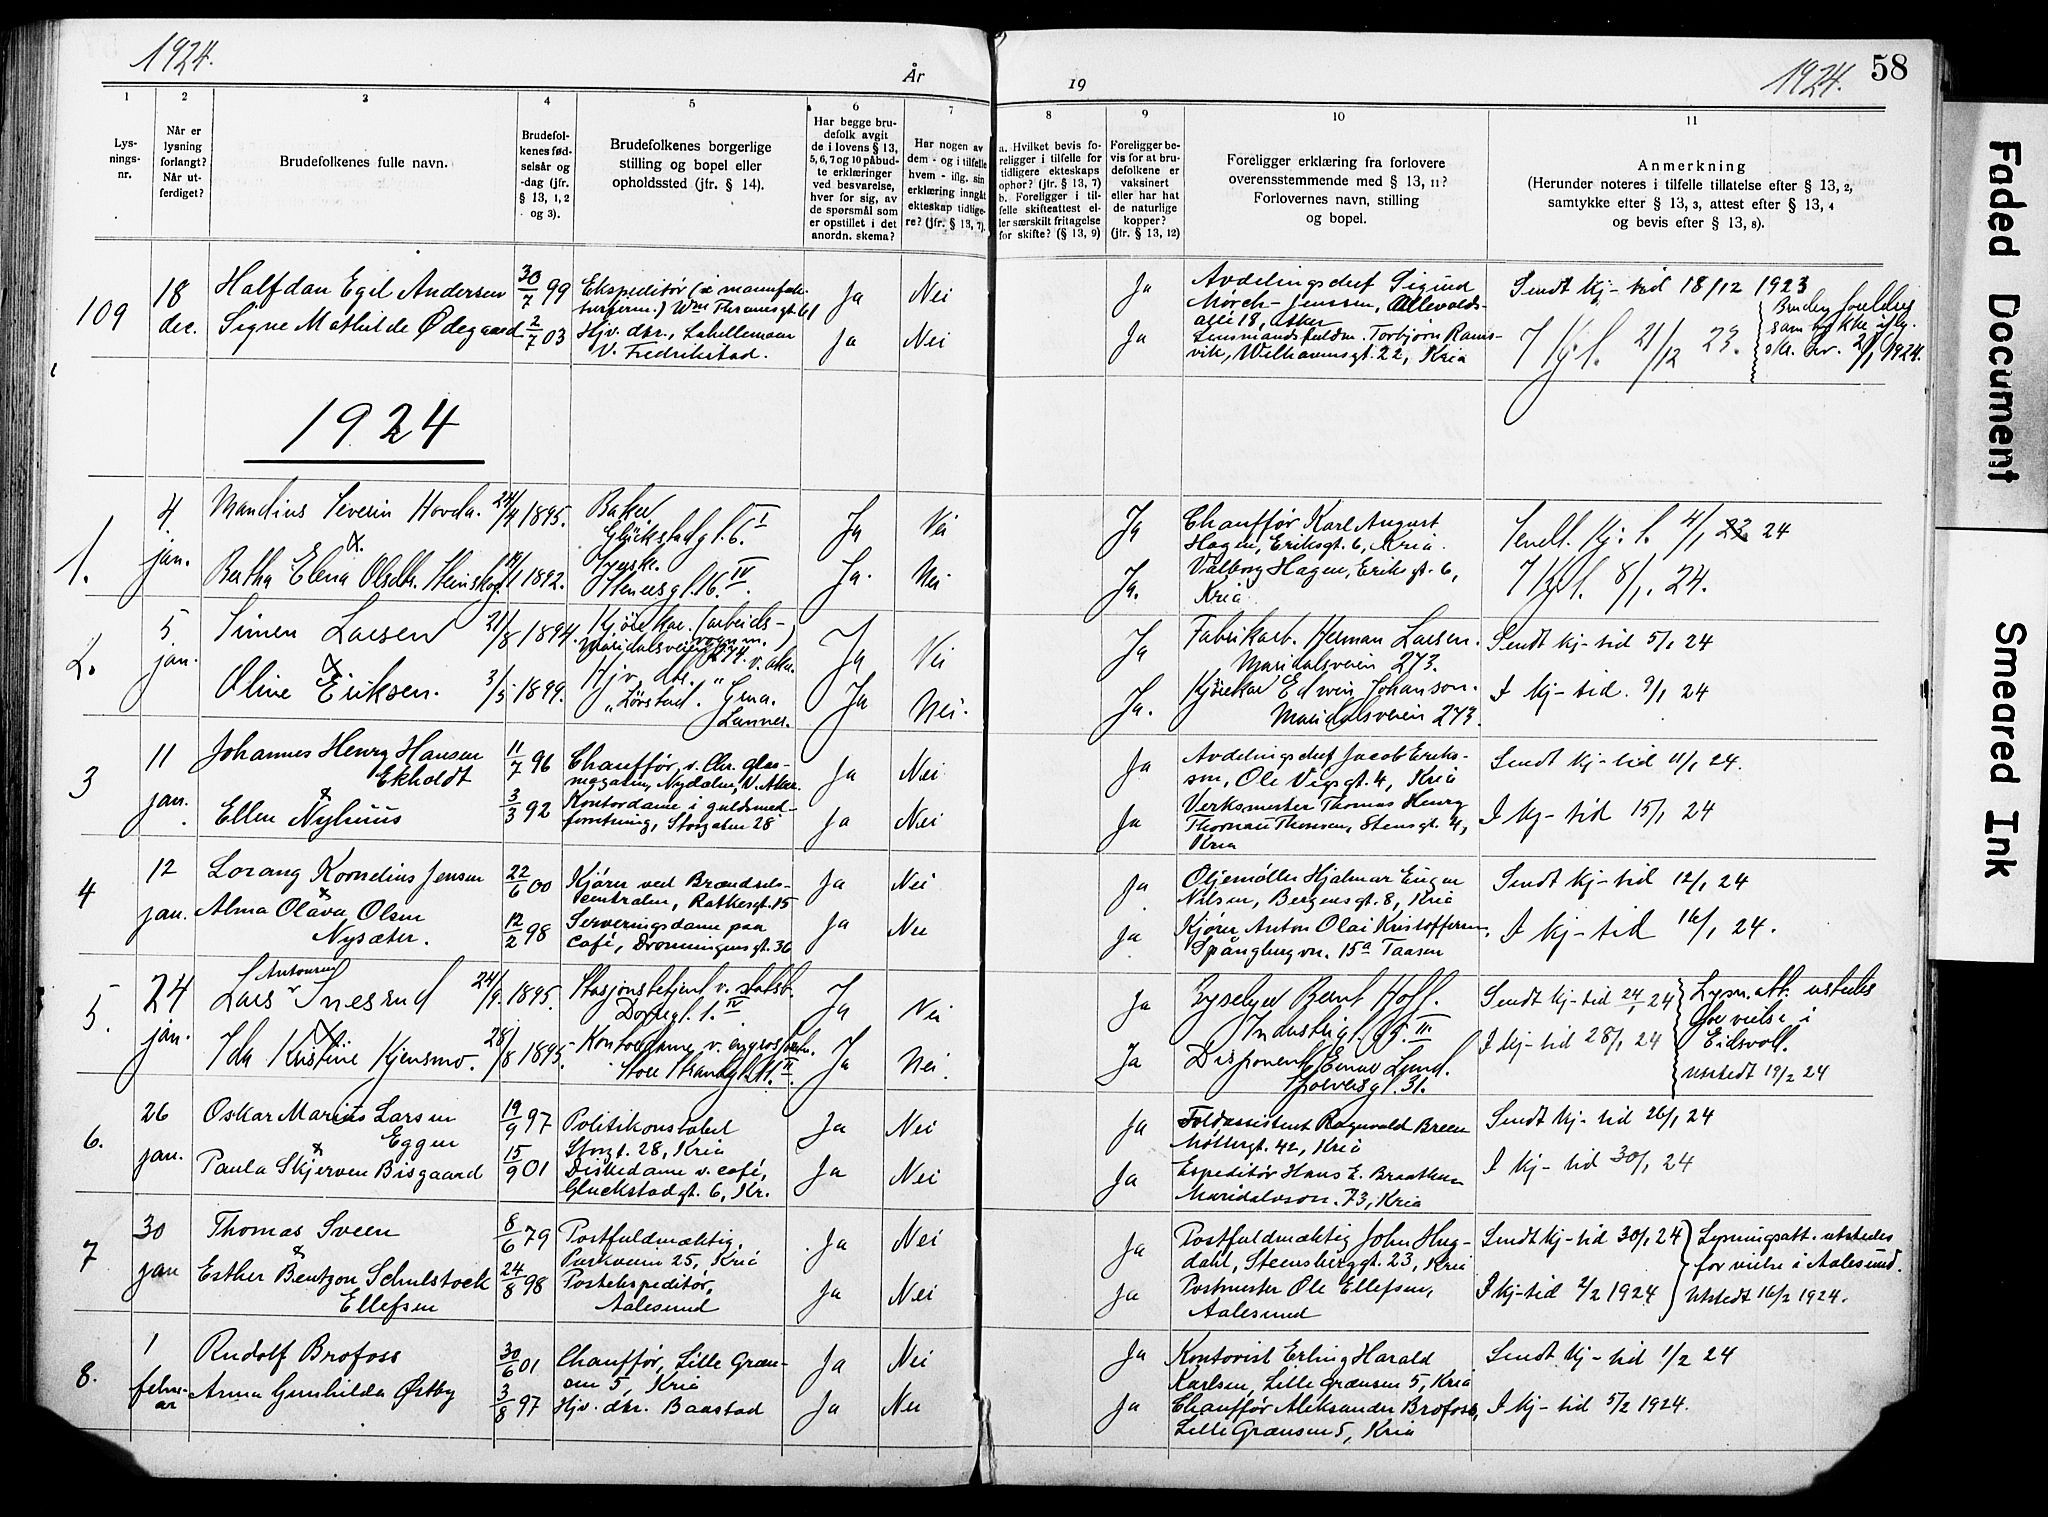 1924.
År
19
1924.
58
1
2
3
4
5
6
7
8
9
10
11
Lys-
nings-
nr.
Når er
lysning
forlangt?
Når ut-
ferdiget?
Brudefolkenes fulle navn.
Brudefol-
kenes fød-
selsår og
-dag (jfr.
§ 13, 1, 2
og 3).
Brudefolkenes borgerlige
stilling og bopel eller
opholdssted (jfr. § 14).
Har begge bru-
defolk avgit
de i lovens § 13,
5, 6, 7 og 10 påbud-
te erklæringer
ved besvarelse,
hver for sig, av
de spørsmål som
er opstillet i det
anordn. skema?
Har nogen av
dem - og i tilfelle
hvem - iflg. sin
erklæring inngåt
ekteskap tidlige-
re? (jfr. § 13, 7).
a. Hvilket bevis fo-
religger i tilfelle for
tidligere ekteskaps
ophør? (jfr. § 13, 7)
b. Foreligger i til-
felle skifteattest el-
ler særskilt fritagelse
for skifte? (§ 13, 9)
Foreligger be-
vis for at bru-
defolkene er
vaksinert
eller har hat
de naturlige
kopper?
(jfr. § 13, 12)
Foreligger erklæring fra forlovere
overensstemmende med § 13, 11?
Forlovernes navn, stilling
og bopel.
Anmerkning
(Herunder noteres i tilfelle tillatelse efter § 13, 2,
samtykke efter § 13, 3, attest efter § 13, 4
og bevis efter § 13, 8).
109
18
dec.
Halfdan Egil Andersen
30/7 99
Ekspeditør (i manufak-
turferm.) Wm Thranesgt 61
Ja
Nei
Ja
Avdelingschef Sigurd
Mørch-Jenssen, Ullevolds-
allé 18, Aker
Sendt Kj-tid 18/12 1923
Signe Mathilde Ødegaard
2/7 03
Hjv. dtr., Lahellemoen
v. Fredrikstad.
Ja
Nei
Ja
Lensmandsfuldm. Torbjørn Rams-
vik, Welhavensgt. 22, Kria
I Kj. t. 21/12 23.
2/1 1924.
1924
1.
4.
jan.
Mandius Severin Hovda.
24/4 1895.
Baker
Glückstadgt. 6. I
Ja
Nei
Ja
Chauffør Karl August
Hagen, Eriksgt. 6, Kria.
Sendt. Kj. t. 4/1 23 24
Bertha Elena Olsdtr. Stenskog.
1892.
Syerske.
Stenersgt. 16. IV.
Ja.
Nei
Ja.
Valborg Hagen, Eriksgt. 6,
Kria
I Kj. t. 8/1. 24.
2.
5
jan.
Simen Larsen
21/8 1894.
Kjørekar. (arbeids-
vognm.)
Maridalsveien 274. v. Aker.
Ja
Nei
Ja
Fabrikarb. Herman Larsen.
Maridalsveien 273.
Sendt Kj-tid 5/1 24
Oline Eriksen.
3/5 1899.
Hjv. dtr.
Ja
Nei.
Ja.
Kjørekar Edwin Johanson.
Maridalsveien 273.
I Kj-tid. 9/1 24
3
11
jan.
Johannes Henry Hansen
Ekholdt
11/7 96
Chauffør, v. Chr. glas-
magasin, Nydalen, V. Aker.
Ja
Nei
Ja
Avdelingschef Jacob Eriks-
son, Ole Vigsgt. 4, Kria
Sendt Kj-tid 11/1 24.
Ellen Nyhuus
3/3 92
Kontordame i guldsmed-
forretning, Storgaten 28
Ja
Nei
Ja
Verksmester Thomas Henry
Thornau Thomsen, Stensgt. 4,
Kria
I Kj-tid 15/1 24
4
12
jan.
Lorang Kornelius Jensen
22/6 00
Kjører ved Brændsels-
centralen, Rathkesgt. 15
Ja
Nei
Ja
Oljemøller Hjalmar Eugen
Nilsen, Bergensgt. 8, Kria
Sendt Kj-tid 12/1 24
Alma Olava Olsen
Nysæter.
12/2 98
Serveringsdame paa
café, Dronningensgt. 30
Ja
Nei
Ja
Kjører Anton Olai Kristoffersen,
Spångbergvn. 15a Taasen
I Kj-tid 16/1 24.
5.
24
jan.
Antonsen
Lars Snesrud
24/9 1895.
Stasjonsbetjent v. statsb.
Dovregt. 1. IV
Ja
Nei
Ja
Bernt Hoff.
Industrigt. 65. III
Sendt Kj-tid 24/1 24
Lysn. att. utstedes
for vielse i
Eidsvoll.
utstedt 19/2 24
Ida Kristine Kjensmo.
28/8 1895.
Kontordame v. engrosforretn.
Store Strandgt. 11. II.
Ja
Nei.
Ja
Disponent Einar Lund.
Solversgt. 31.
I Kj-tid 28/1 24
6.
26
jan.
Oskar Marius Larsen
Eggen
19/9 97
Politikonstabel
Storgt. 28, Kria
Ja
Nei
Ja
Toldassistent Ragnvald Breen
Møllergt. 42, Kria
Sendt Kj-tid 26/1 24
Paula Skjerven Bisgaard
15/9 01
Diskedame v. café,
Gluckstadgt. 6, Kr.
Ja
Nei
Ja
Expeditør Hans E. Braathen
Maridalsveien. 73, Kria
I Kj-tid 30/1 24
7
30
jan
Thomas Sveen
8/6 79
Postfuldmæktig,
Parkveien 25, Kria
Ja
Nei
Ja
Postfuldmæktig John Hug-
dahl, Steensberggt. 23, Kria
Sendt Kj-tid 30/1 24
Lysningsatt. utstedes
for vielse i Aalesund.
Utstedt 16/2 1924.
Esther Bentzon Schulstock
Ellefsen
24/8 98
Postekspeditør,
Aalesund
Ja
Nei
Ja
Postmester Ole Ellefsen,
Aalesund
I Kj-tid 2/2 1924
8.
1
febru-
ar
Rudolf Brofoss
30/6 01
Chauffør, Lille Græn-
sen 5, Kria
Ja
Nei
Ja
Kontorist Erling Harald
Karlsen, Lille Grænsen 5, Kria
Sendt Kj-tid 1/2 24
Anna Gunhilda Østby
3/8 97
Hjv. dtr. Baastad
Ja
Nei
Ja
Chauffør Aleksander Brofoss,
Lille Grænsen 5, Kria
I Kj-tid 5/2 1924.
Faded Document
Smeared Ink